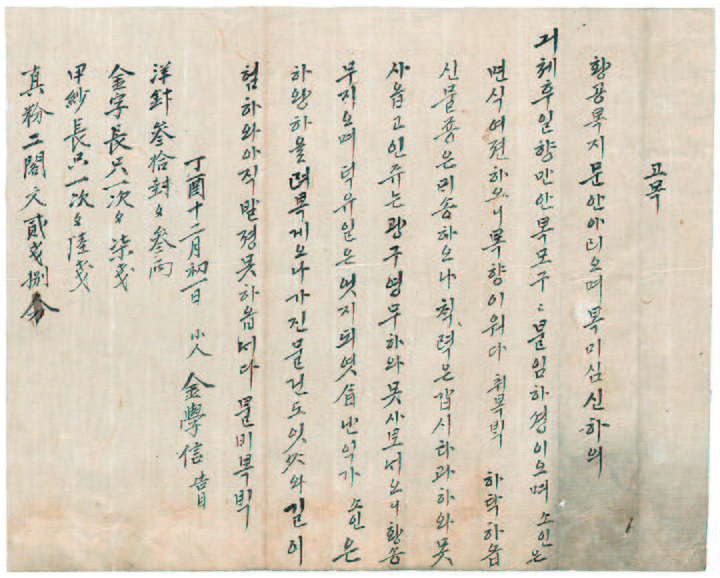 고목
황공복지 문안아뢰오며 복미심 신하의
긔체후일향만안복모구〻 물임하셩이오며 소인은
면식여젼하오니 복향이워다 취복븩 하탁하옵
신물죵은 긔송하오나 쳑력은 갑시하과하와 못
사옵고 인쥬는 광구영무하와 못사로셔오니 황송
무지오며 덕유일은 엇지되엿습 난잇가 소인은
하왕하올 려 복게오나 가진 물건도 잇삽와 길이
험하와 아직 발졍못하옵너다 물비복븩
丁酉十二月初一日 小人 金學信 告目
洋針參拾封文參両
金字長只一次文柒戔
甲紗長只一次文陸戔
真粉二閣文貳戔捌分